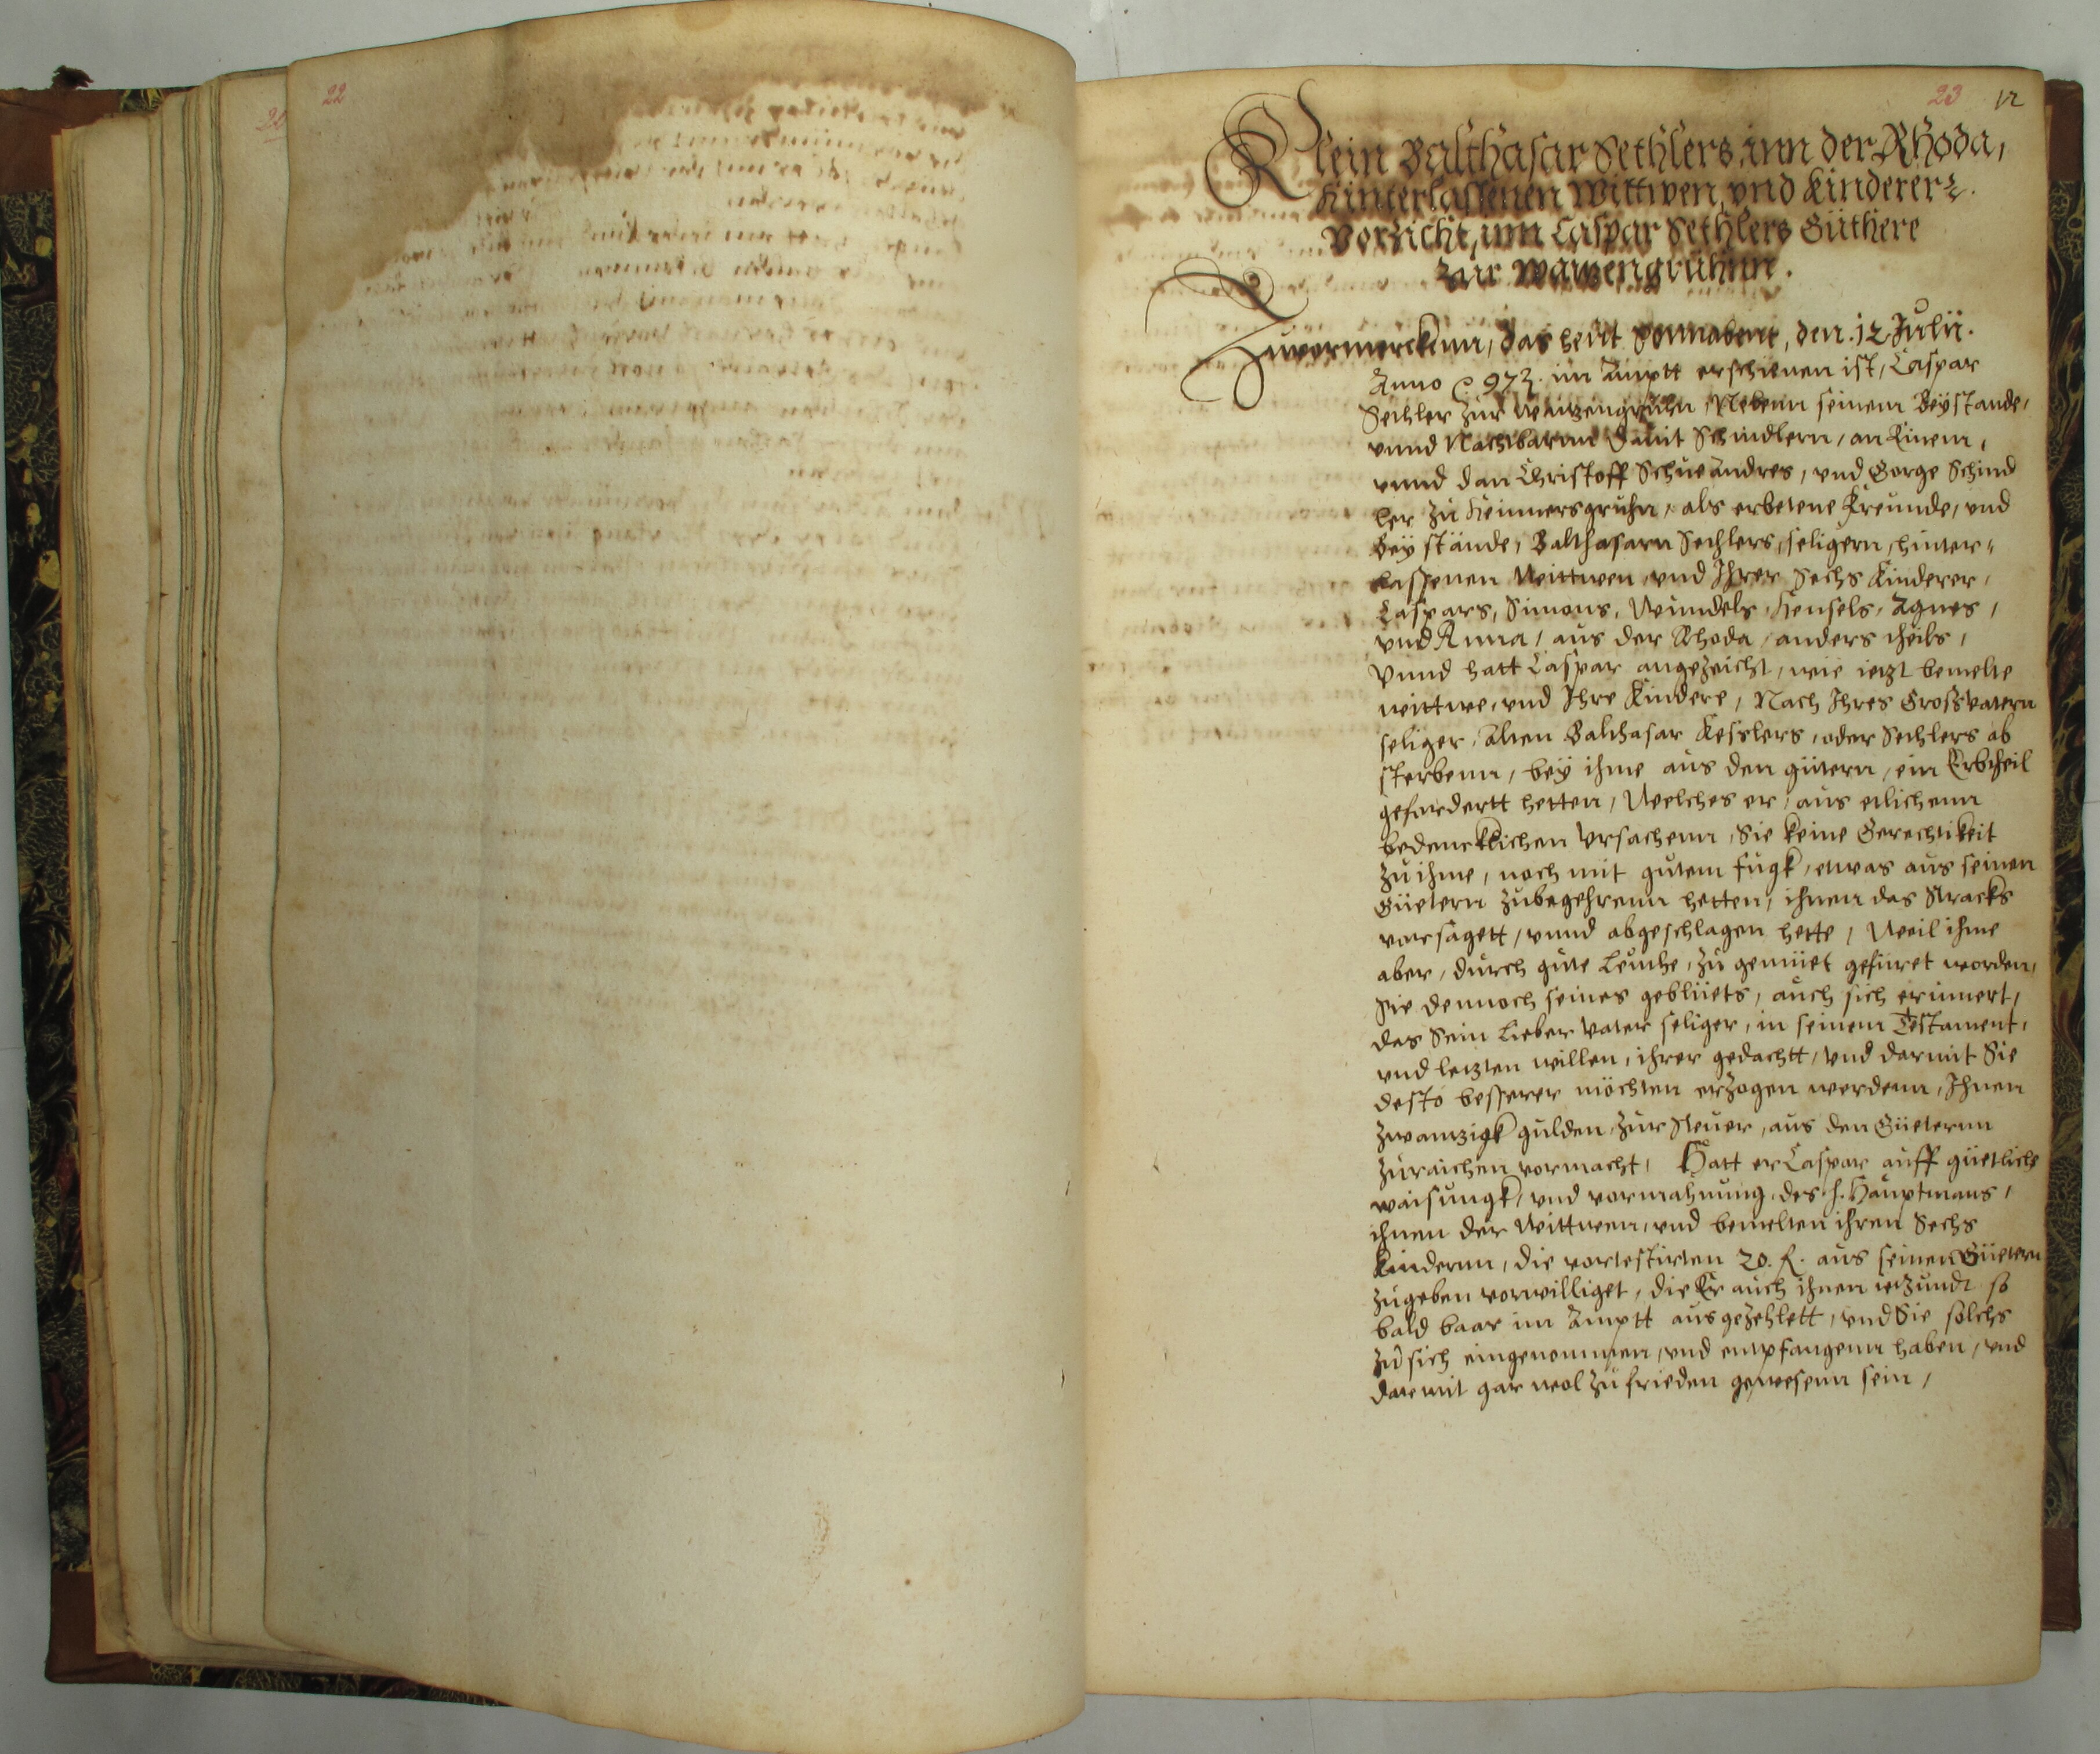 22
23 12
Klein Balthasar Sethlers, inn der Rhoda,
Hinterlassenen Wittwen, vnd Kinderer
Vorzicht, inn Caspar Sethlers Güthere
zur Waitzengrühnn.
Zuvormerckenn, das heut Sonnabent, den .12 Julii.
Anno 97. im Ampt erschienen ist, Caspar
Sethler zur Waitzengruhn, Nebenn seinem Beystande,
vnnd Nachbarnn Dauit Schindlern, an Einem,
vnnd dan Christoff Schue Andres, vnd Gorge Schind
ler zu Heinnersgruhn, als erbetene Freunde, vnd
Beystände, Balthasarn Sethlers, seligern, hinter-
lassenen Wittwen, vnd Ihrer Sechs Kinderer,
Caspars, Simons, Hensels, Agnes,
vnd Anna, aus der Rhoda, anders theils,
Vnnd hatt Caspar angezeicht, wie ietzt bemelte
wittwe, vnd Ihre Kindere, Nach Ihres Großvatern
seliger, Alten Balthasar Kesslers, oder Sethlers ab
sterbenn, bey ihme aus den gütern, ein Erbtheil
gefordertt hetten, Welches er, aus etlichenn
bedencklichen Vrsachenn, Sie keine Gerechtikeit
zu ihme, noch mit gutem fugk, etwas aus seinen
Güetern zubegehrenn hetten, ihnen das Stracks
vorsagett, vnnd abgeschlagen hette, Weil ihme
aber, durch gute Leuthe, zu gemüet gefüret worden,
Sie dennoch seines geblüets, auch sich erinnert,
das Sein Lieber Vater seliger, in seinem Testament,
vnd letzten willen, ihrer gedachtt, vnd darmit Sie
desto besserer möchten erzogen werdenn, Ihnen
zwantzigk gulden, zur Steuer, aus den Güeternn
zuraichen vormacht, Hatt er Caspar auff güetliche
waisungk, vnd vormahnung, des H. Hauptmans,
ihnen der Wittwen, vnd bemelten ihren Sechs
Kindernn, die vortestirten 20. fl. aus seinen Güetern
zugeben vorwilliget, die Er auch ihnen ietzundt so
bald baar im Ampt ausgezehlett, vnd Sie solchs
zu sich eingenommen, vnd empfangenn haben, vnd
daremit gar wol zu frieden gewesenn sein,